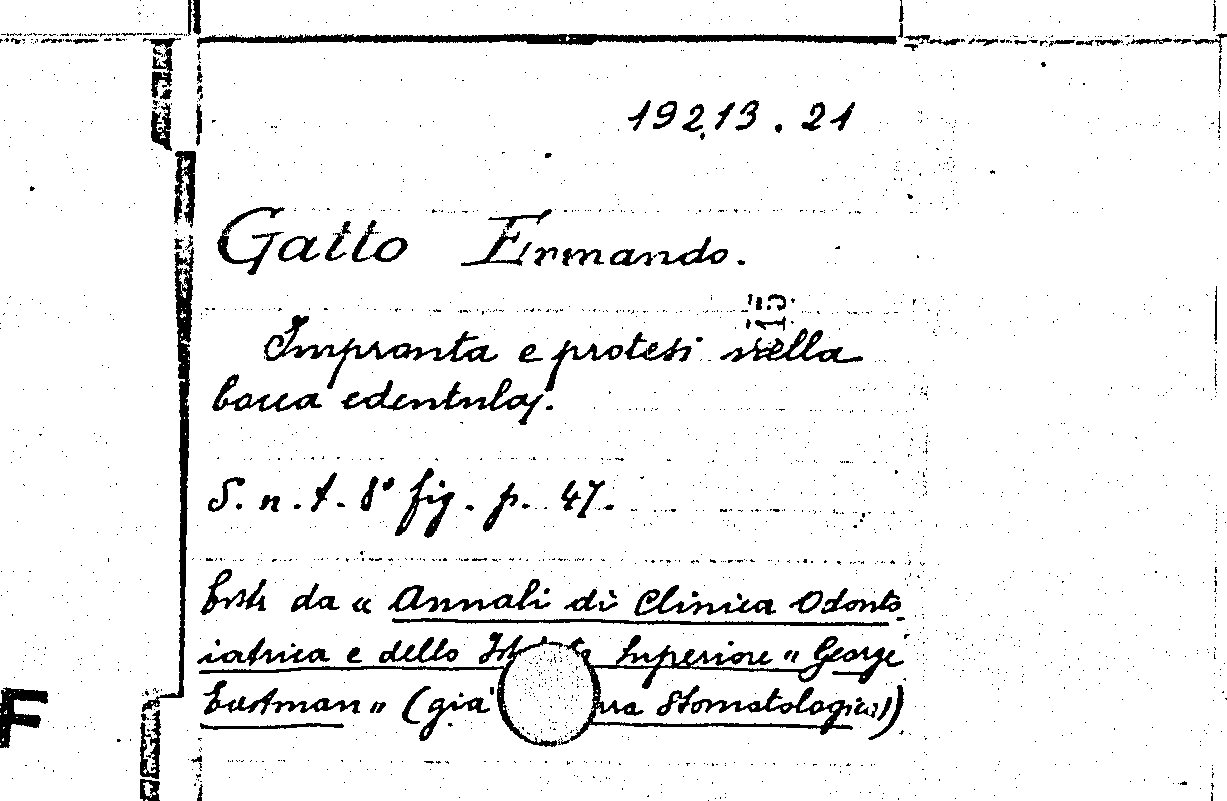 19213.21
Gatto Ermando.
15
Impronta e protesi nella
bocca edentula.
S. n. t. 8° fig. p. 47.
Estr. da " Annali di Clinica Odonto
iatrica e dello Superiore " George
Eastman " (già Stomatologica)
F